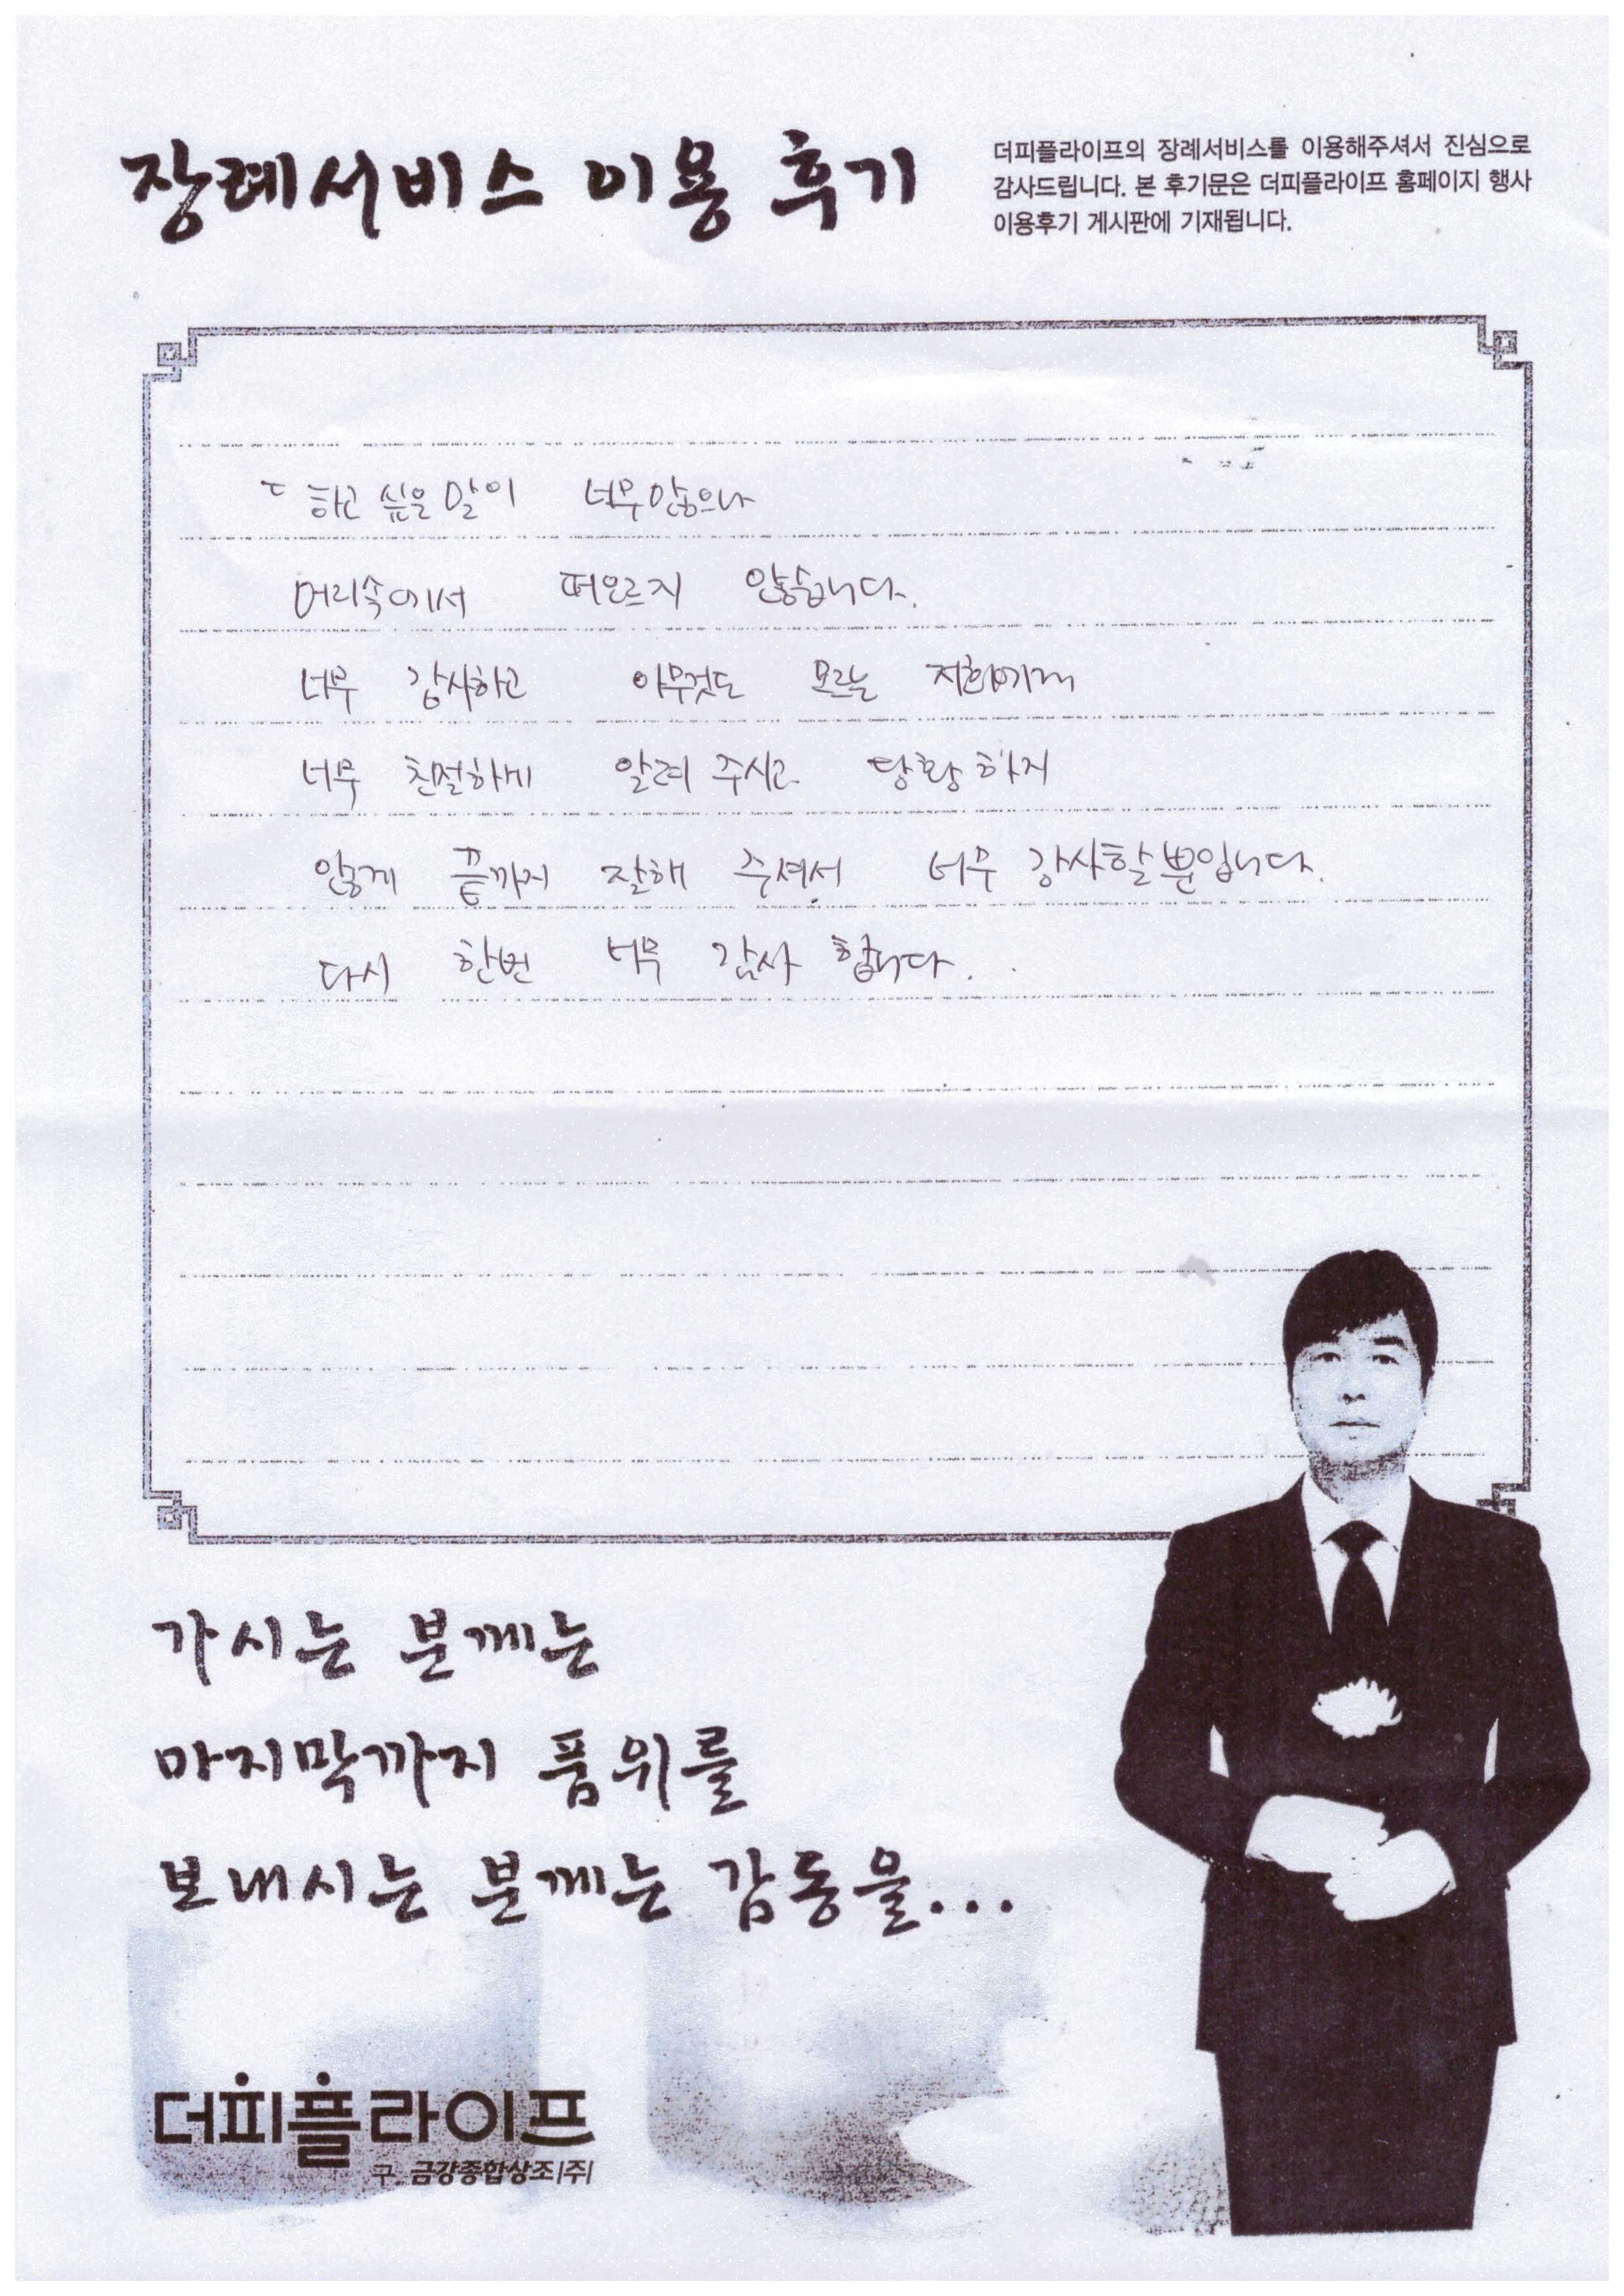 장례서비스 이용 후기
더피플라이프의 장례서비스를 이용해주셔서 진심으로
감사드립니다. 본 후기문은 더피플라이프 홈페이지 행사
이용후기 게시판에 기재됩니다.
하고 싶은 말이 너무많으나
머리속에서 떠오르지 않습니다.
너무 감사하고 아무것도 모르는 저희에게
너무 친절하게 알려 주시고 당황 하지
않게 끝까지 잘해 주셔서 너무 감사할뿐입니다.
다시 한번 너무 감사 합니다.
가시는 분께는
마지막까지 품위를
보내시는 분께는 감동을...
더피플라이프
구. 금강종합상조(주)